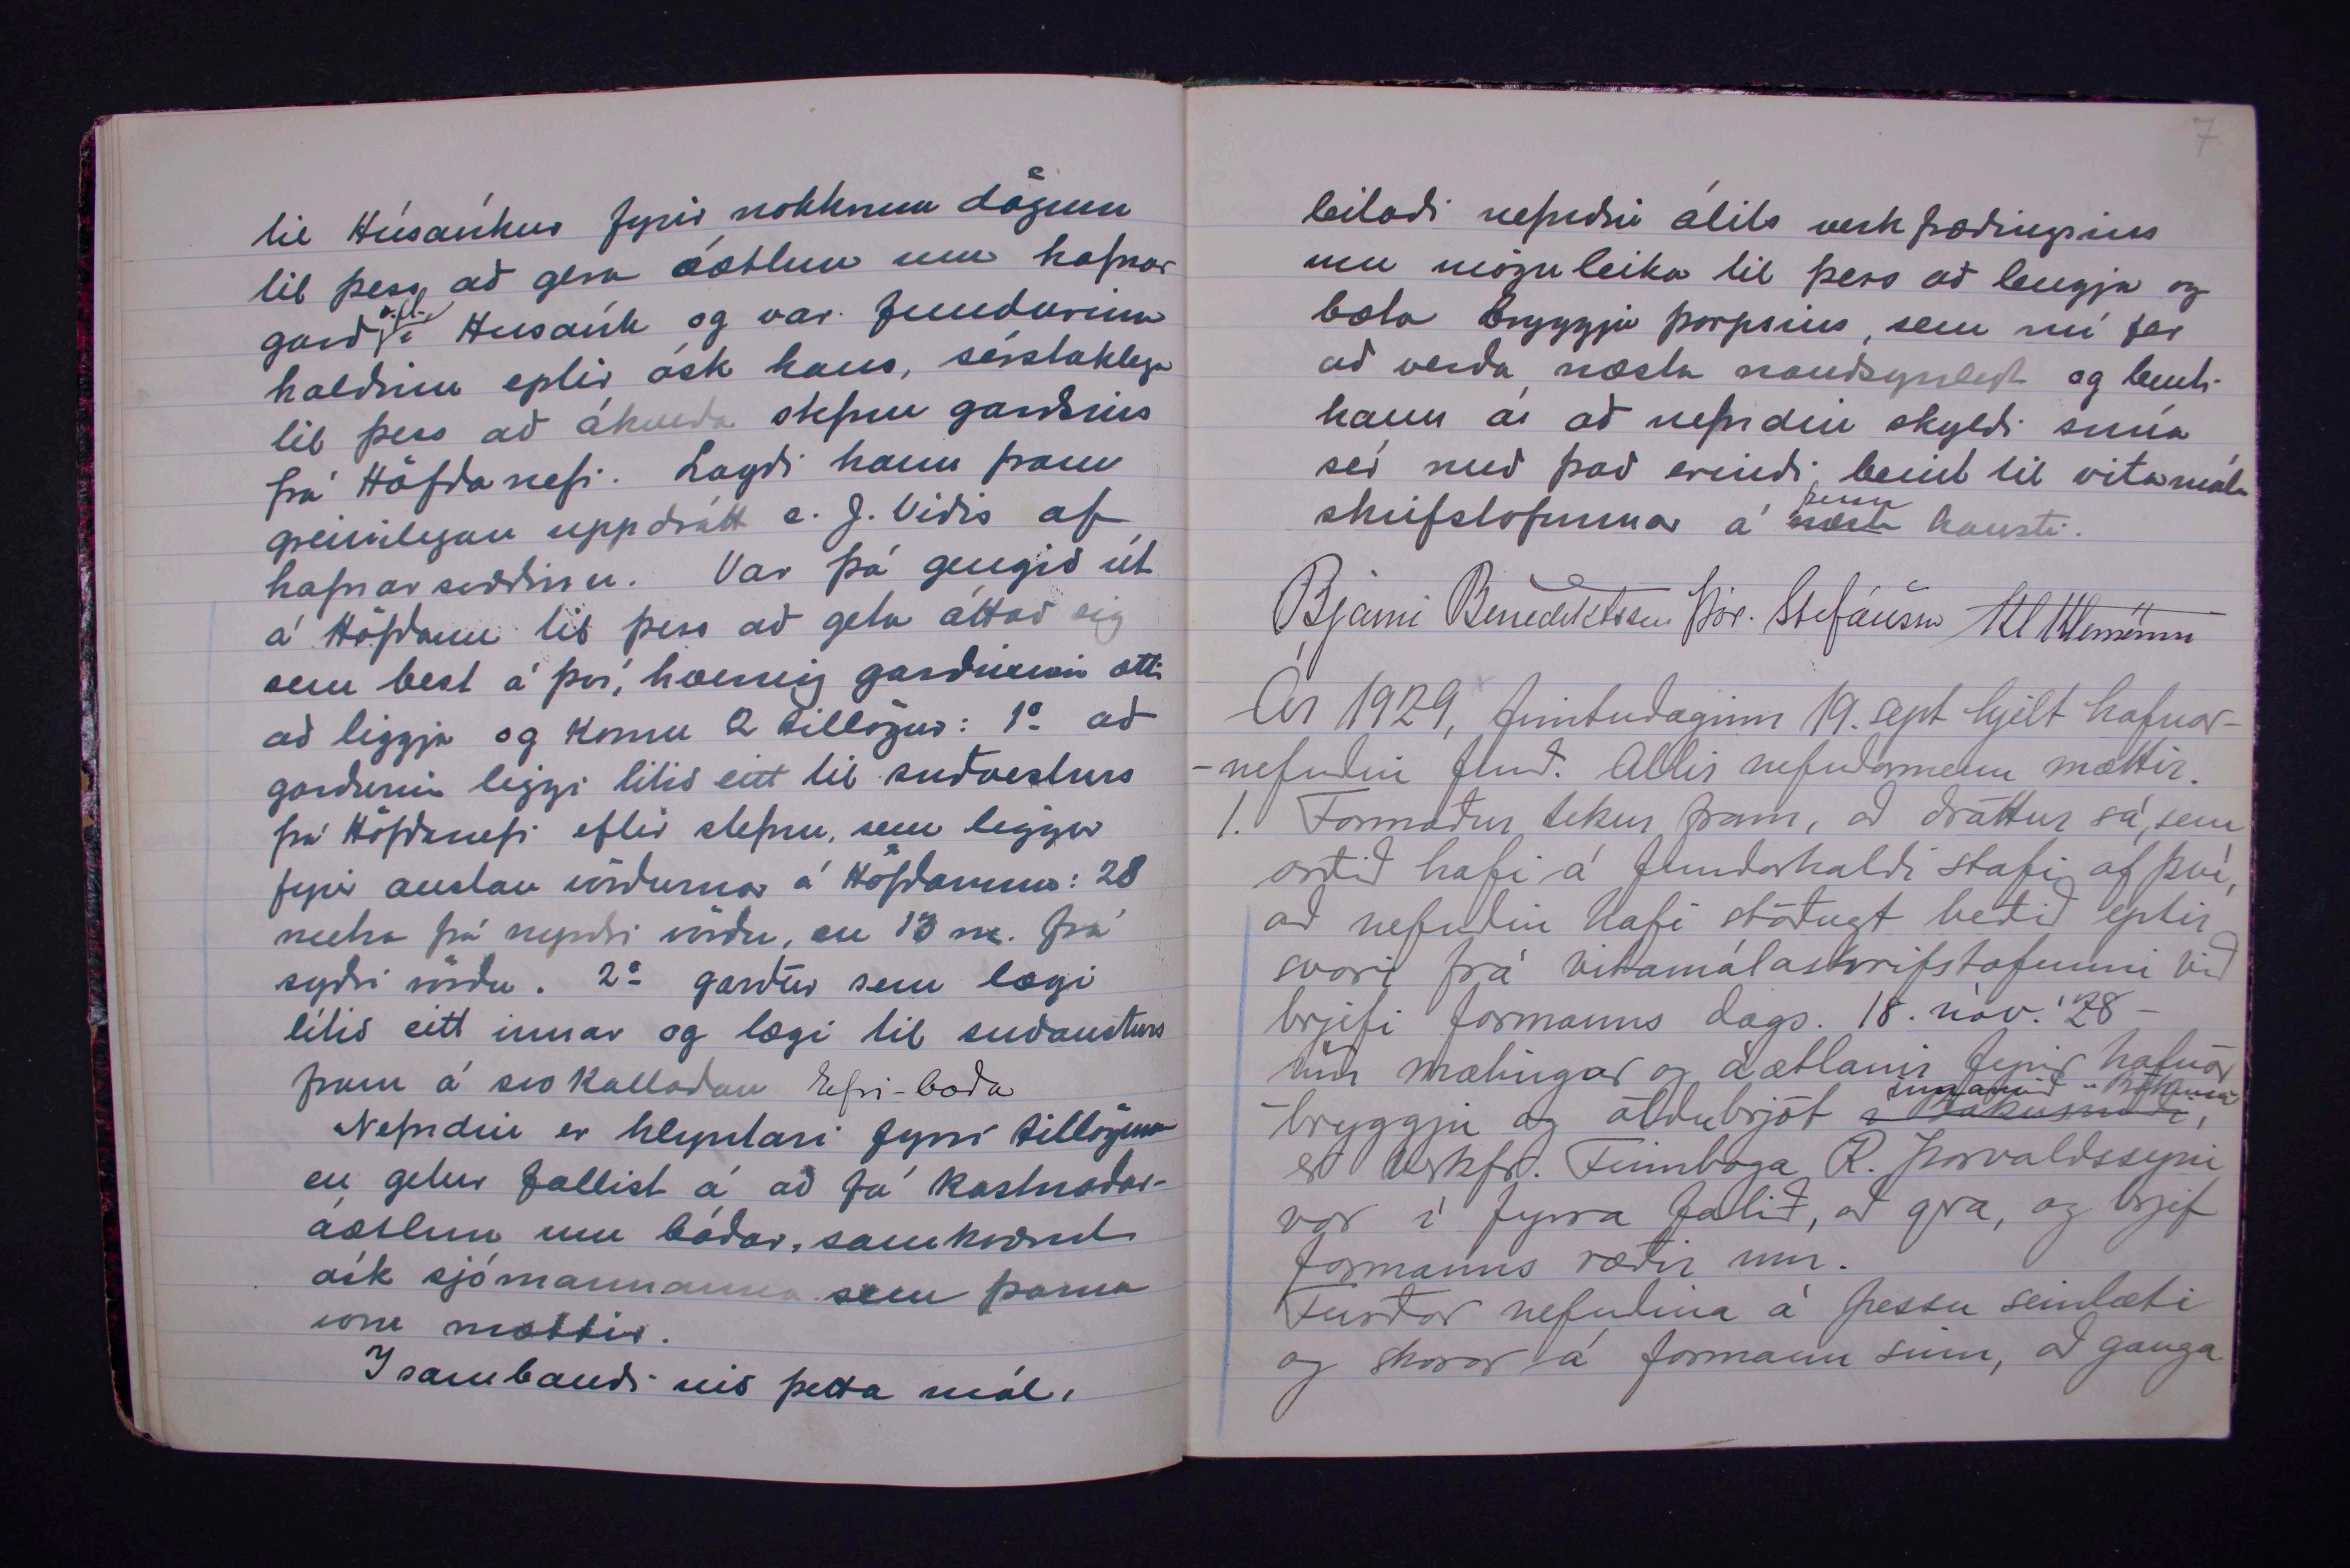 til Húsavíkur fyrir nokkrum dögum
til þess að gera áætlun um hafnar
garð í Húsavík og var fundurinn
haldinn eptir ósk hans, sérstaklega
til þess að ákveða stefnu garðsins
frá Höfðanefi. Lagði hann fram
greinilegan uppdrátt e. J. Víðis af
hafnarsvæðinu. Var þá gengið út
á Höfðann til þess að geta áttað sig
sem best á því, hvernig garðurinn ætti
að liggja og komu 2 tillögur: 1º að
garðurinn liggi lítið eitt til suðvesturs
frá Höfðanefi eftir stefnu, sem liggur
fyrir austan vörðurnar á Höfðanum: 28
metra frá nyrðri vörðu, en 13 m. frá
syðri vörðu. 2º garður sem lægi
lítið eitt innar og lægi til suðausturs
fram á svokallaðan Efri-boða
Nefndin er hlyntari fyrri tillögunni
en getur fallist á að fá kostnaðar-
áætlun um báðar, samkvæmt
ósk sjómannanna sem þarna
voru mættir.
Í sambandi við þetta mál,
7
leitaði nefndin álits verkfræðingsins
um möguleika til þess að lengja og
bæta bryggju þorpsins, sem nú fer
að verða næsta nauðsynlegt og benti
hann á að nefndin skyldi snúa
sér með það erindi beint til vitamála
skrifstofunnar á næsta þessu hausti.
Bjarni Benediktsson Þór. Stefánsson Kl Klemensson
Ár 1929, fimtudaginn 19. sept hjelt hafnar-
-nefndin fund. Allir nefndarmenn mættir.
1. Formaður tekur fram, að dráttur sá, sem
orðið hafi á fundarhaldi stafi af því,
að nefndin hafi stöðugt beðið eptir
svari frá vitamálaskrifstofunni við
brjefi formanns dags. 18. nóv. '28 -
um mælingar og áætlanir fyrir hafnar
-bryggju og öldubrjót
er verkfr. Finnboga R. Þorvaldssyni
var í fyrra falið, að gera, og brjef
formanns ræðir um.
Furðar nefndina á þessu seinlæti
og skorar á formann sinn, að ganga